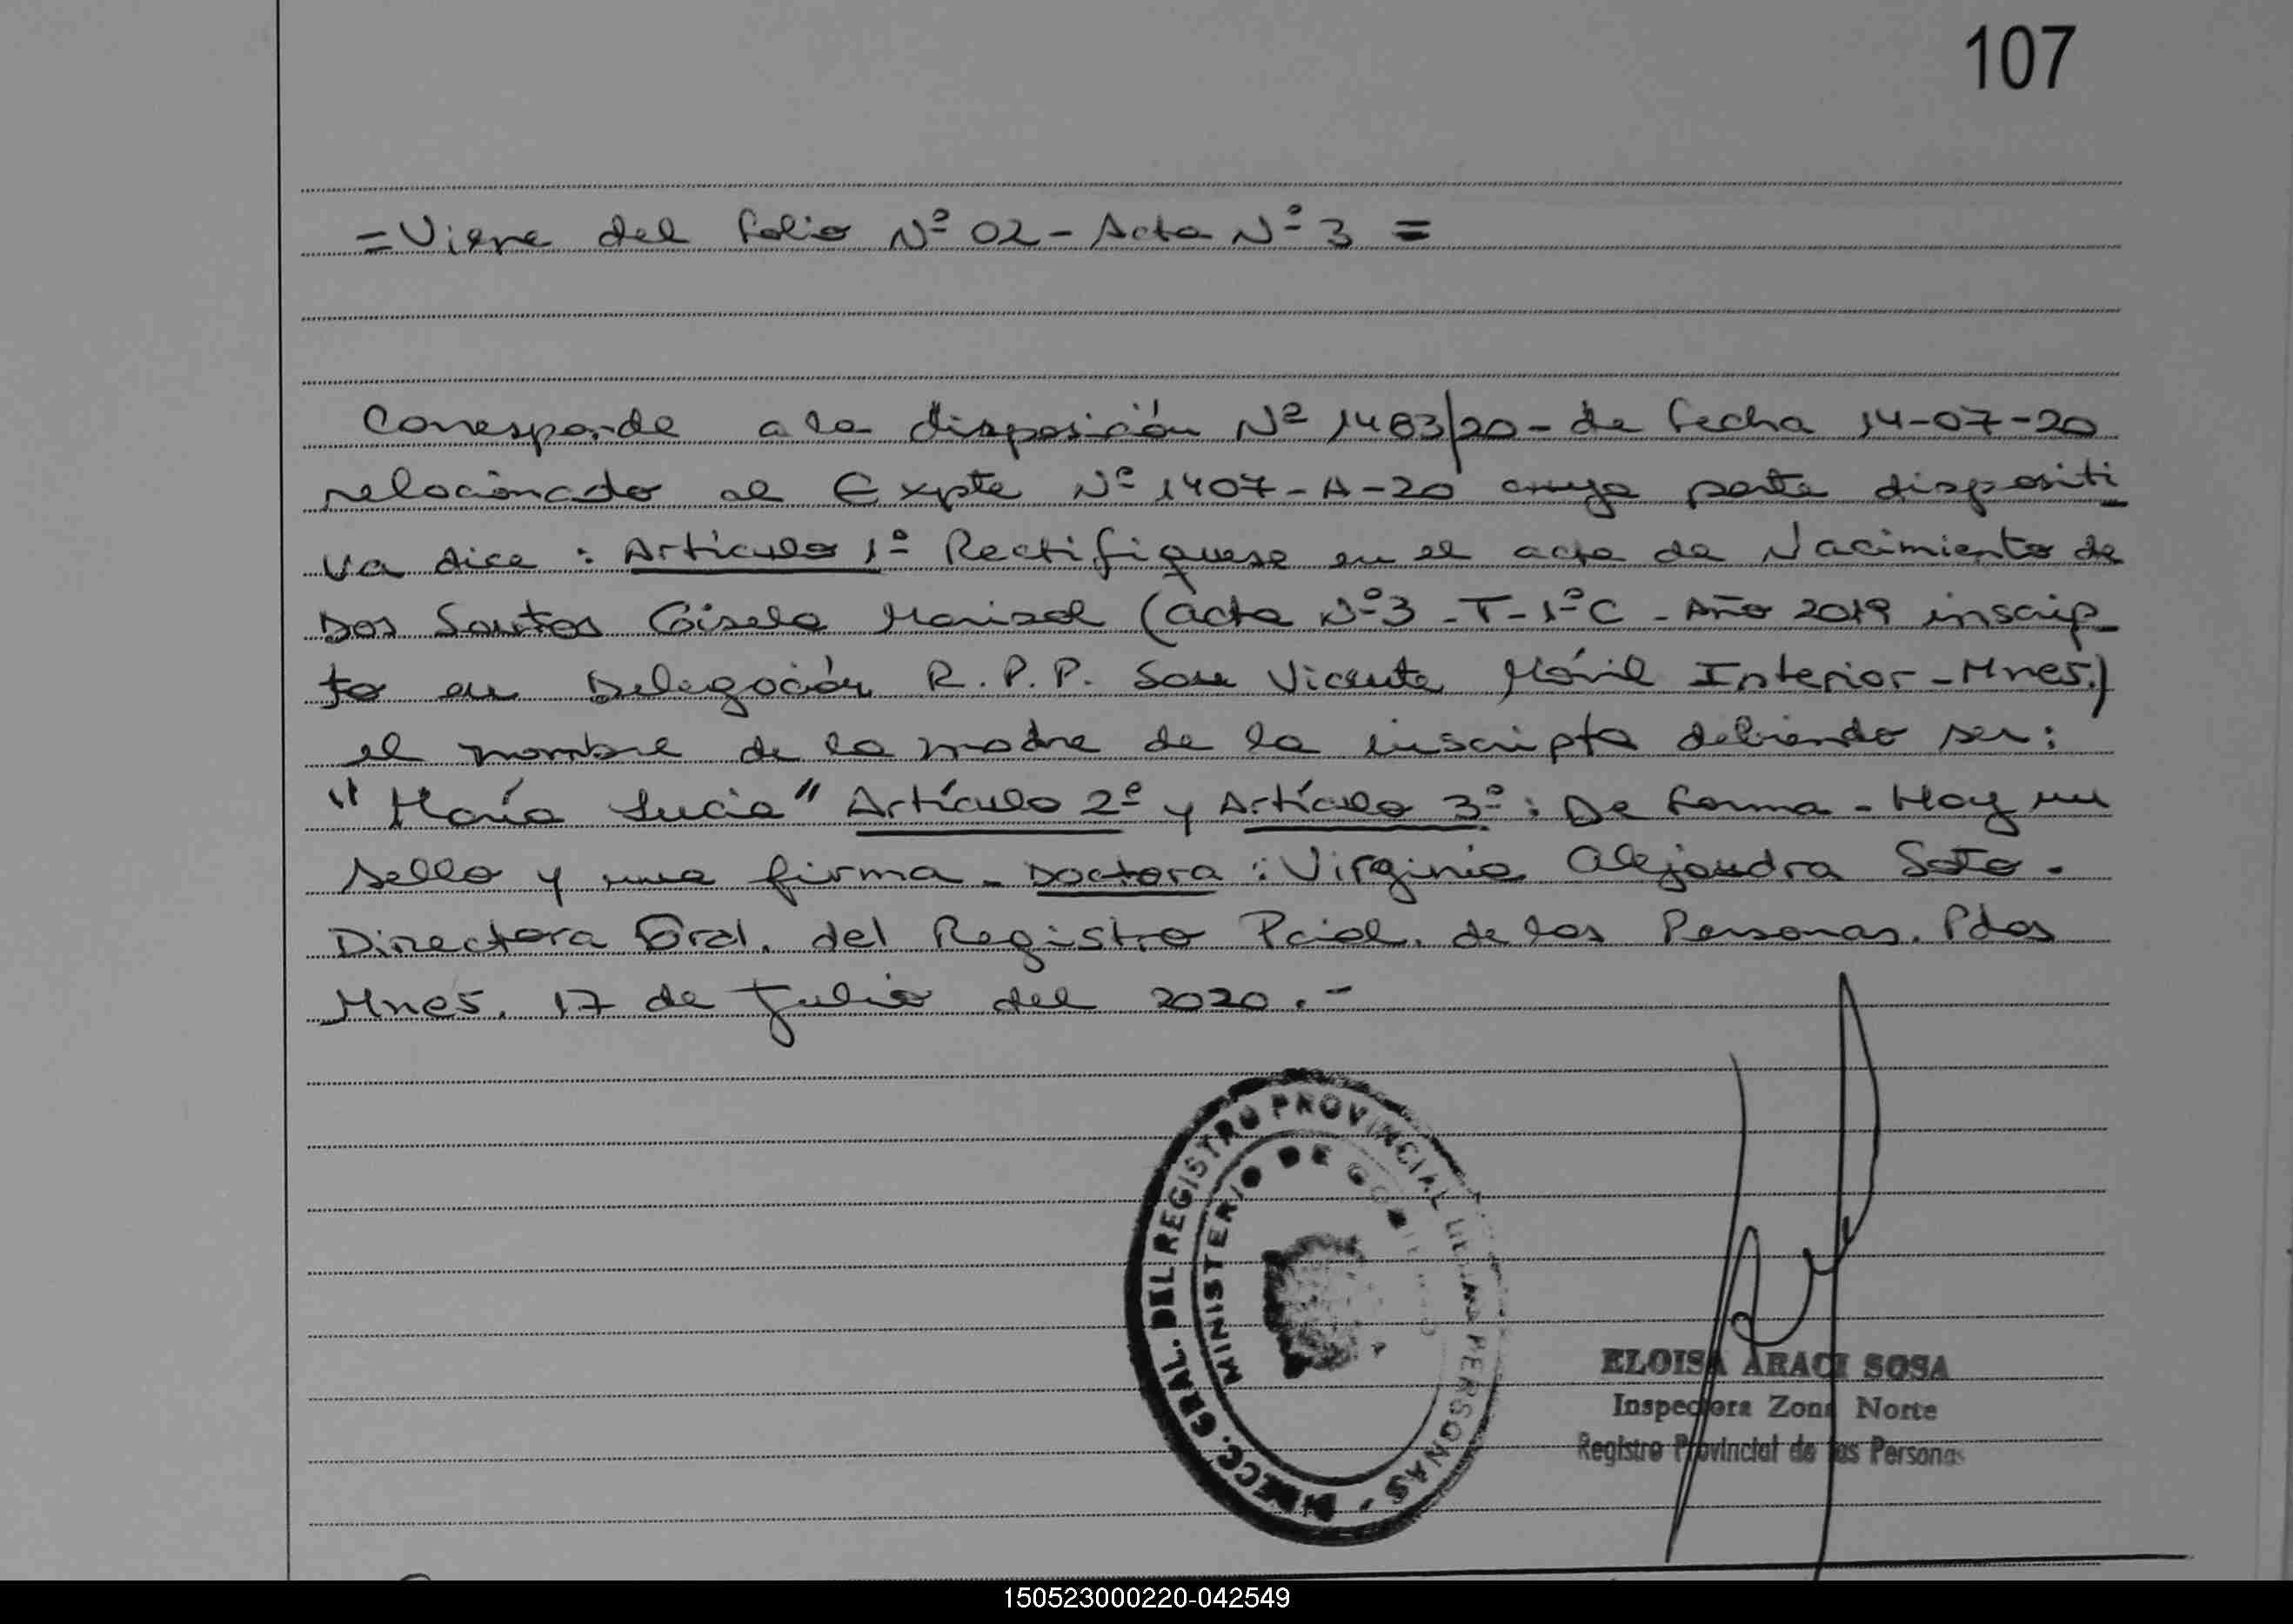 107
=Viene del folio Nº 02 - Acta Nº 3 =
Corresponde a la disposición Nº 1483/20- de fecha 14-07-20
relacionado al Expte Nº 1407-A-20 cuya parte dispositi
va dice : Artículo 1º Rectifiquese en el acta de Nacimiento de
Dos Santos Gisela Marisol (acta Nº3 - T-1ºC - Año 2019 inscrip_
to en Delegación R.P.P. San Vicente Móvil Interior - Mnes.)
el nombre de la madre de la inscripta debiendo ser:
"María Lucia" Artículo 2º y Artículo 3º : De forma - Hay un
sello y una firma - Doctora : Virginia Alejandra Soto.
Directora Gral. del Registro Pcial. de las Personas. Pdas
Mnes. 17 de Julio del 2020.-
DIRECC. GRAL. DEL REGISTRO PROVINCIAL PERSONAS
MINISTERIO DE
ELOISA ARACI SOSA
Inspectora Zona Norte
Registro Provincial de las Personas
150523000220-042549